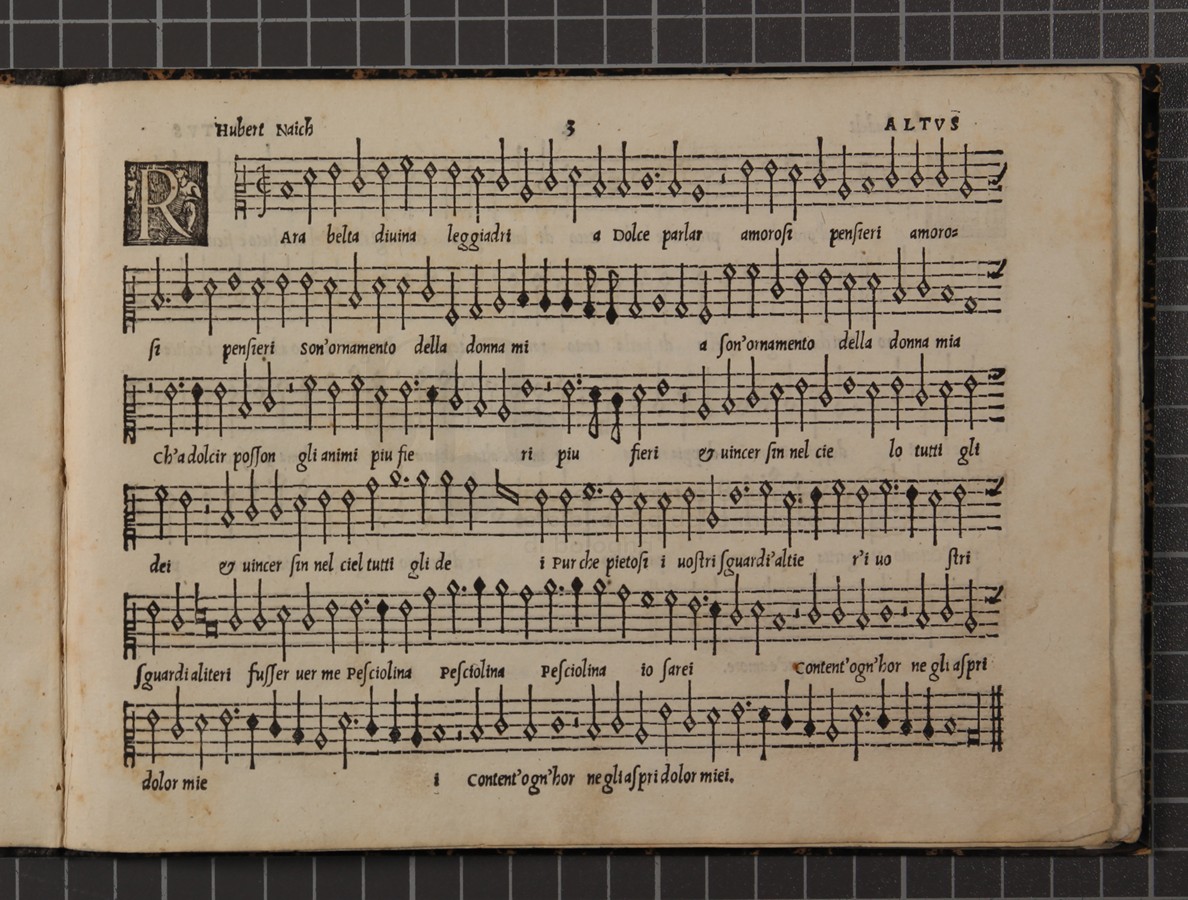 Hubert Naich 3 ALTVS
RAra belta diuina leggiadri a Dolce parlar amorosi pensieri amoro=
si pensieri Son'ornamento della donna mi a son'ornamento della donna mia
Ch'a dolcir posson gli animi piu fie ri piu fieri & uincer sin nel cie lo tutti gli
dei & uincer sin nel ciel tutti gli de i Pur che pietosi i uostri sguardi'altie r'i uo stri
sguardi alteri fusser uer me Pesciolina Pesciolina Pesciolina io sarei Content'ogn'hor ne gli aspri
dolor mie i Content'ogn'hor ne gli aspri dolor miei.